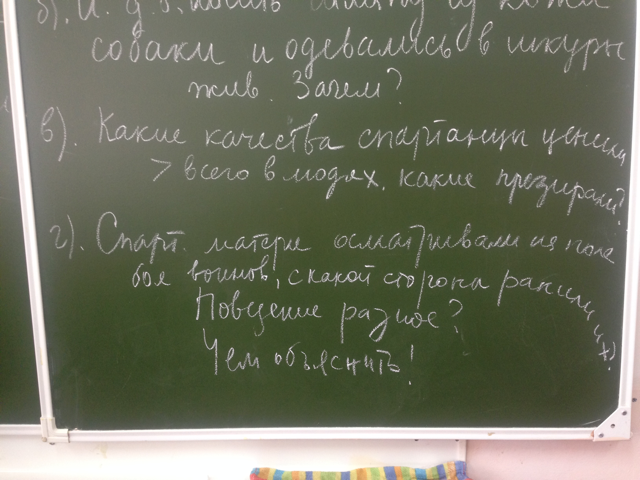 б). И. д. б. носить шапку из кожи
собаки и одевались в шкуры
жив. Зачем?
в). Какие качества спартанцы ценили
> всего в людях, какие презирали?
г). Спарт. матери осматривали на поле
боя воинов, с какой стороны ранили их?
Поведение разное?
Чем объяснить!